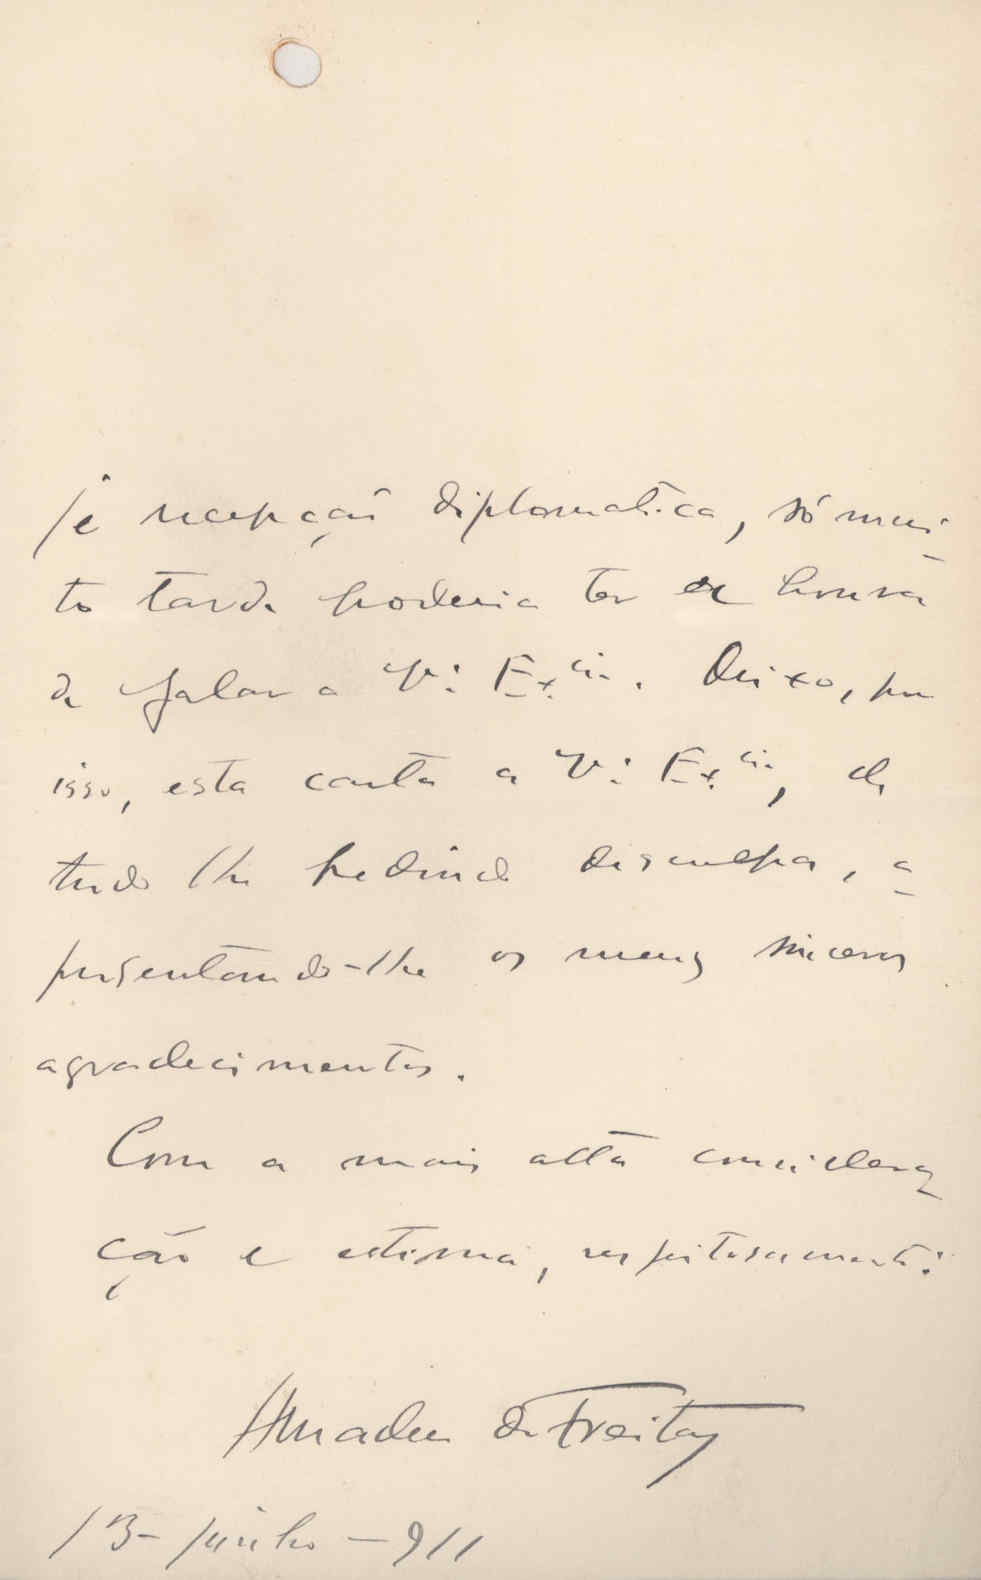 je recepção diplomatica, só mui-
to tarde poderia ter a honra
de falar a V.: Ex.cia. Deixo, por
isso, esta carta a V.: Ex.cia, de
tudo lhe pedindo desculpa, a-
presentando-lhe os meus sinceros
agradecimentos.
Com a mais alta considera-
ção e estima, respeitosamente:
Amadeu de Freitas
13 - junho - 911